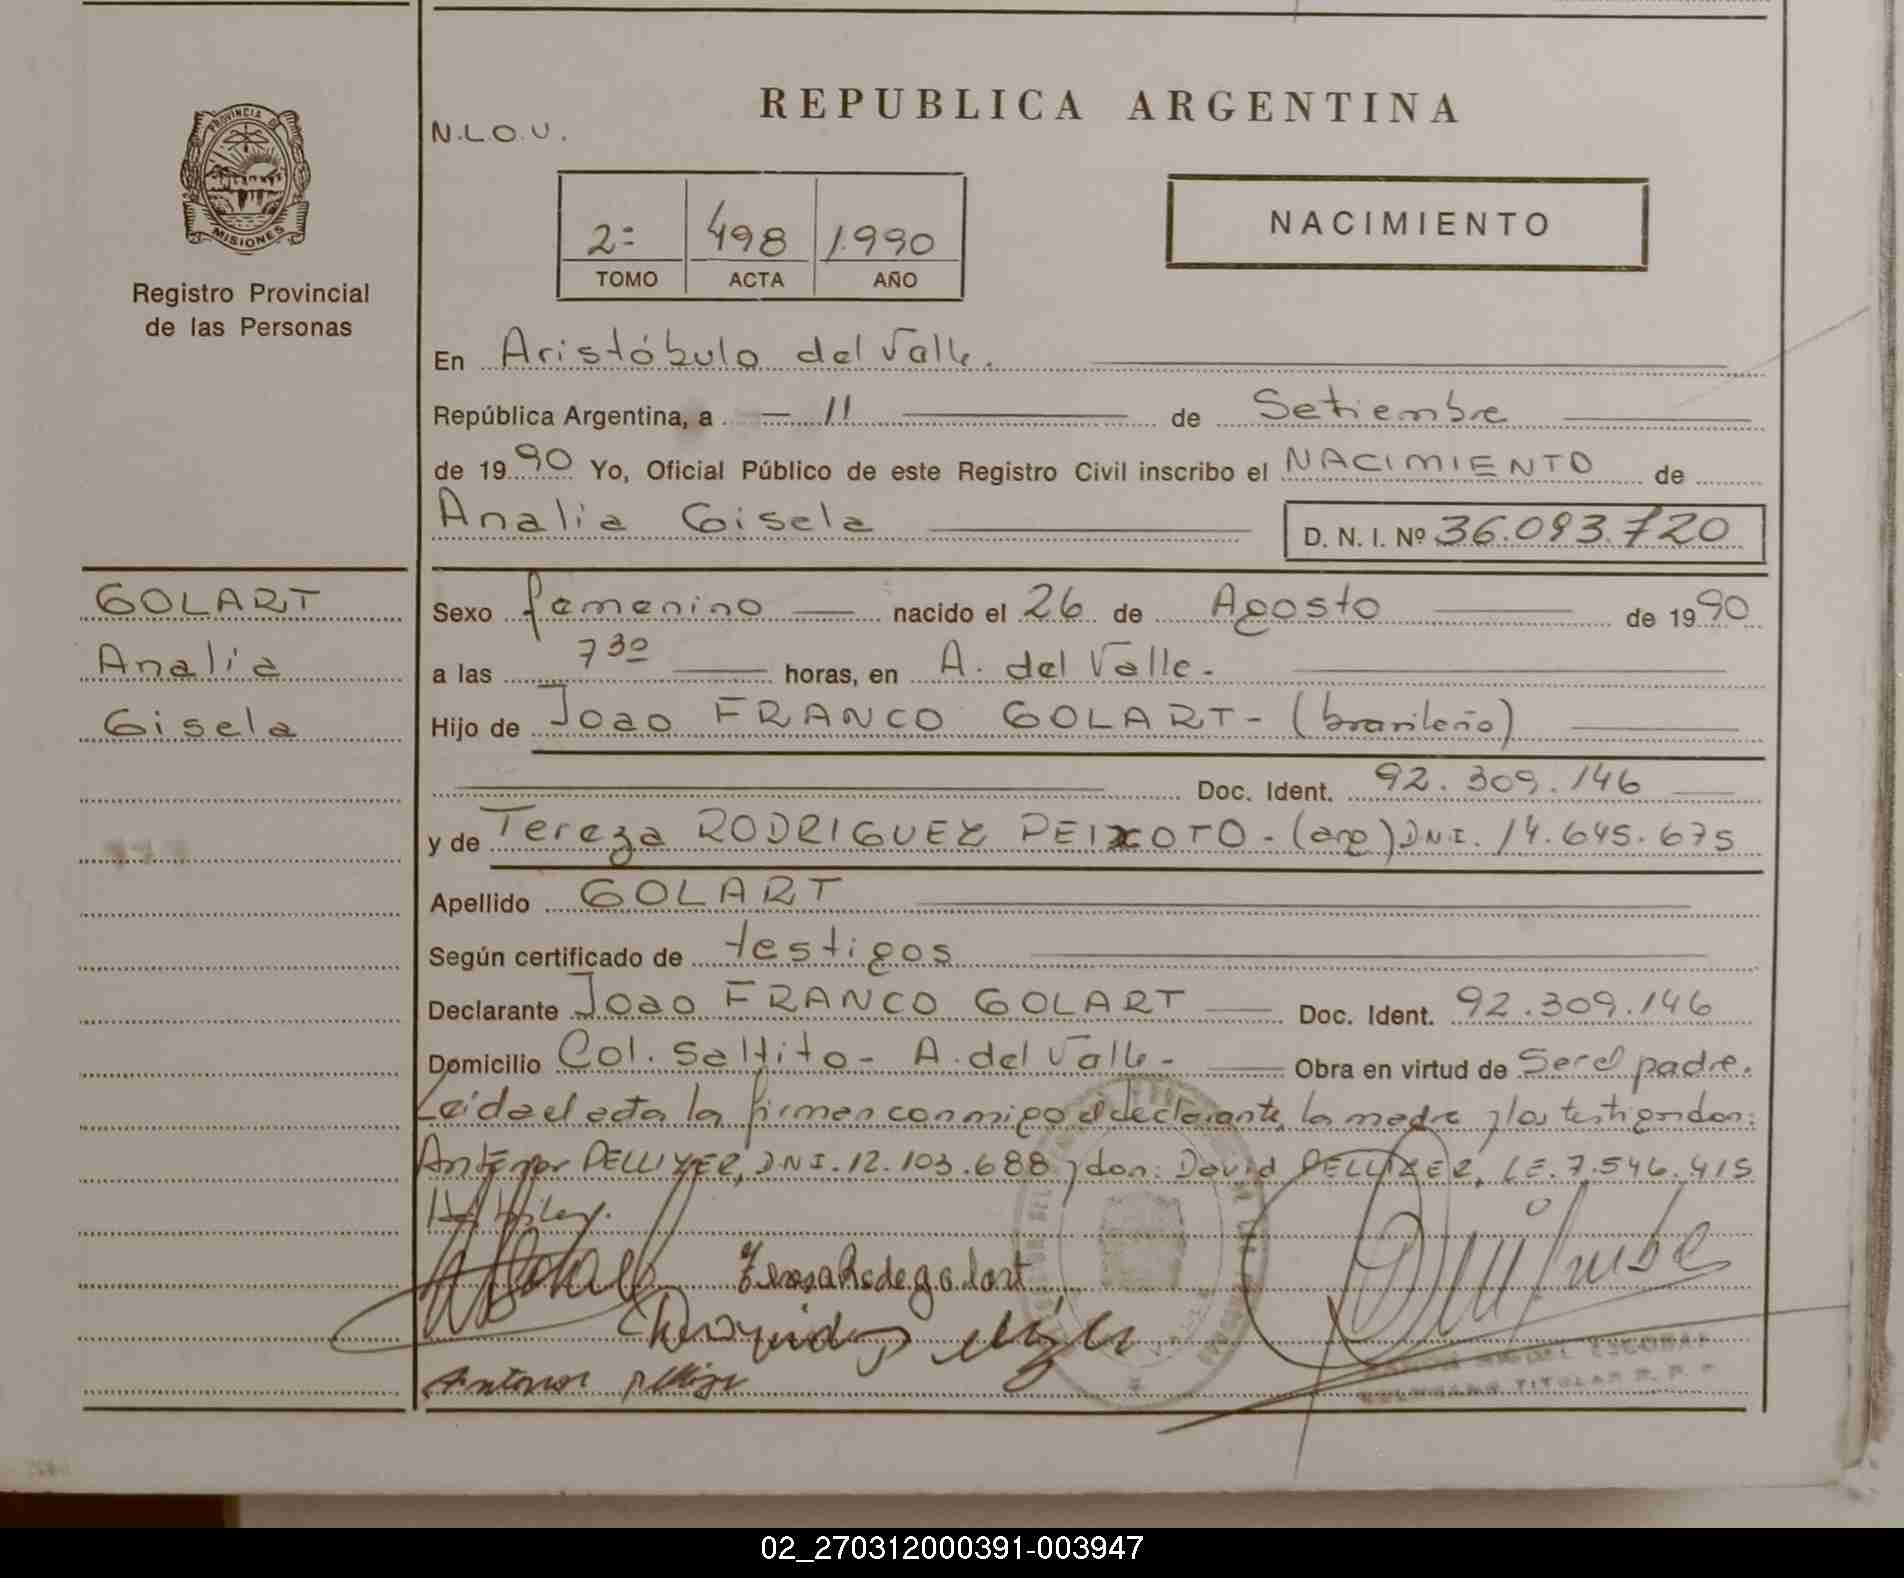 REPUBLICA ARGENTINA
N.L.O.U.
PROVINCIA DE
MISIONES
Registro Provincial
de las Personas
2= 498 1.990
TOMO ACTA AÑO
NACIMIENTO
En Aristóbulo del Valle.
República Argentina, a 11 de Setiembre
de 1990 Yo, Oficial Público de este Registro Civil inscribo el NACIMIENTO de
Analia Gisela D. N. I. Nº 36.093.720
GOLART
Analia
Gisela
Sexo femenino nacido el 26 de Agosto de 1990
a las 7 30 horas, en A. del Valle.
Hijo de Joao FRANCO GOLART - (brasileño)
Doc. Ident. 92.309.146
y de Tereza RODRIGUEZ PEIXOTO - (arg) DNI. 14.645.675
Apellido GOLART
Según certificado de testigos
Declarante Joao FRANCO GOLART Doc. Ident. 92.309.146
Domicilio Col. Saltito - A. del Valle - Obra en virtud de Ser el padre.
Leida el acta la firman conmigo el declarante, la madre y los testigos don:
Antenor PELLIZER, DNI. 12.103.688 y don: David PELLIZER, LE. 7.546.415
Hábiles.
Antenor
ESCOBAR
TITULAR R. P.
02_270312000391-003947